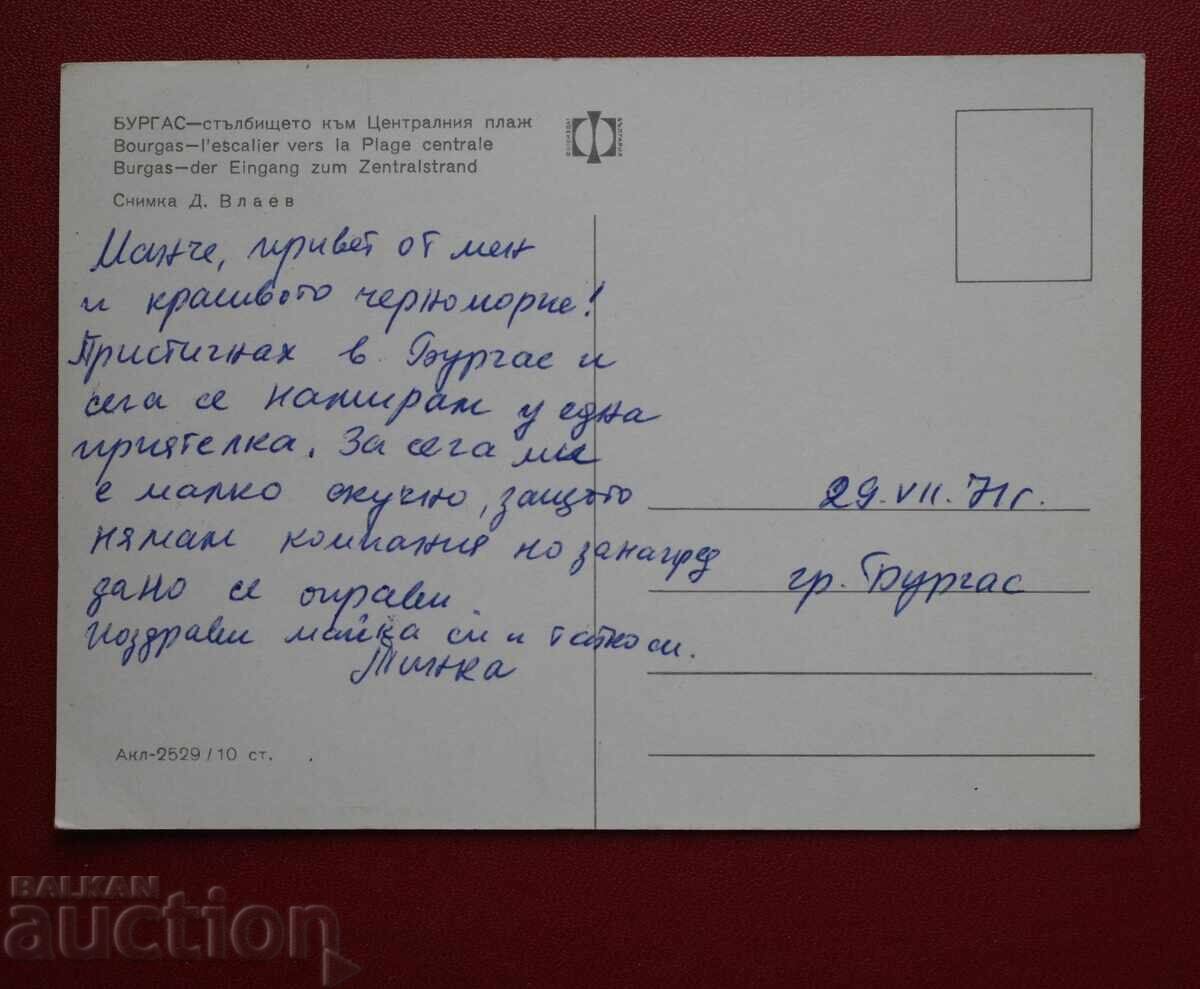 БУРГАС—стълбището към Централния плаж
Bourgas—l'escalier vers la Plage centrale
Burgas—der Eingang zum Zentralstrand
Снимка Д. Влаев
ФОТОИЗДАТ
БЪЛГАРИЯ
привет от мен
и красивото черноморие!
Пристигнах в Бургас и
сега се намирам у една
приятелка. За сега ми
е малко скучно, защото
нямам компания но занапред
дано се оправи.
Поздрави майка си и татко си.
Тинка
29.VII.71г.
гр. Бургас
Акл-2529/10 ст.
BALKAN
auction